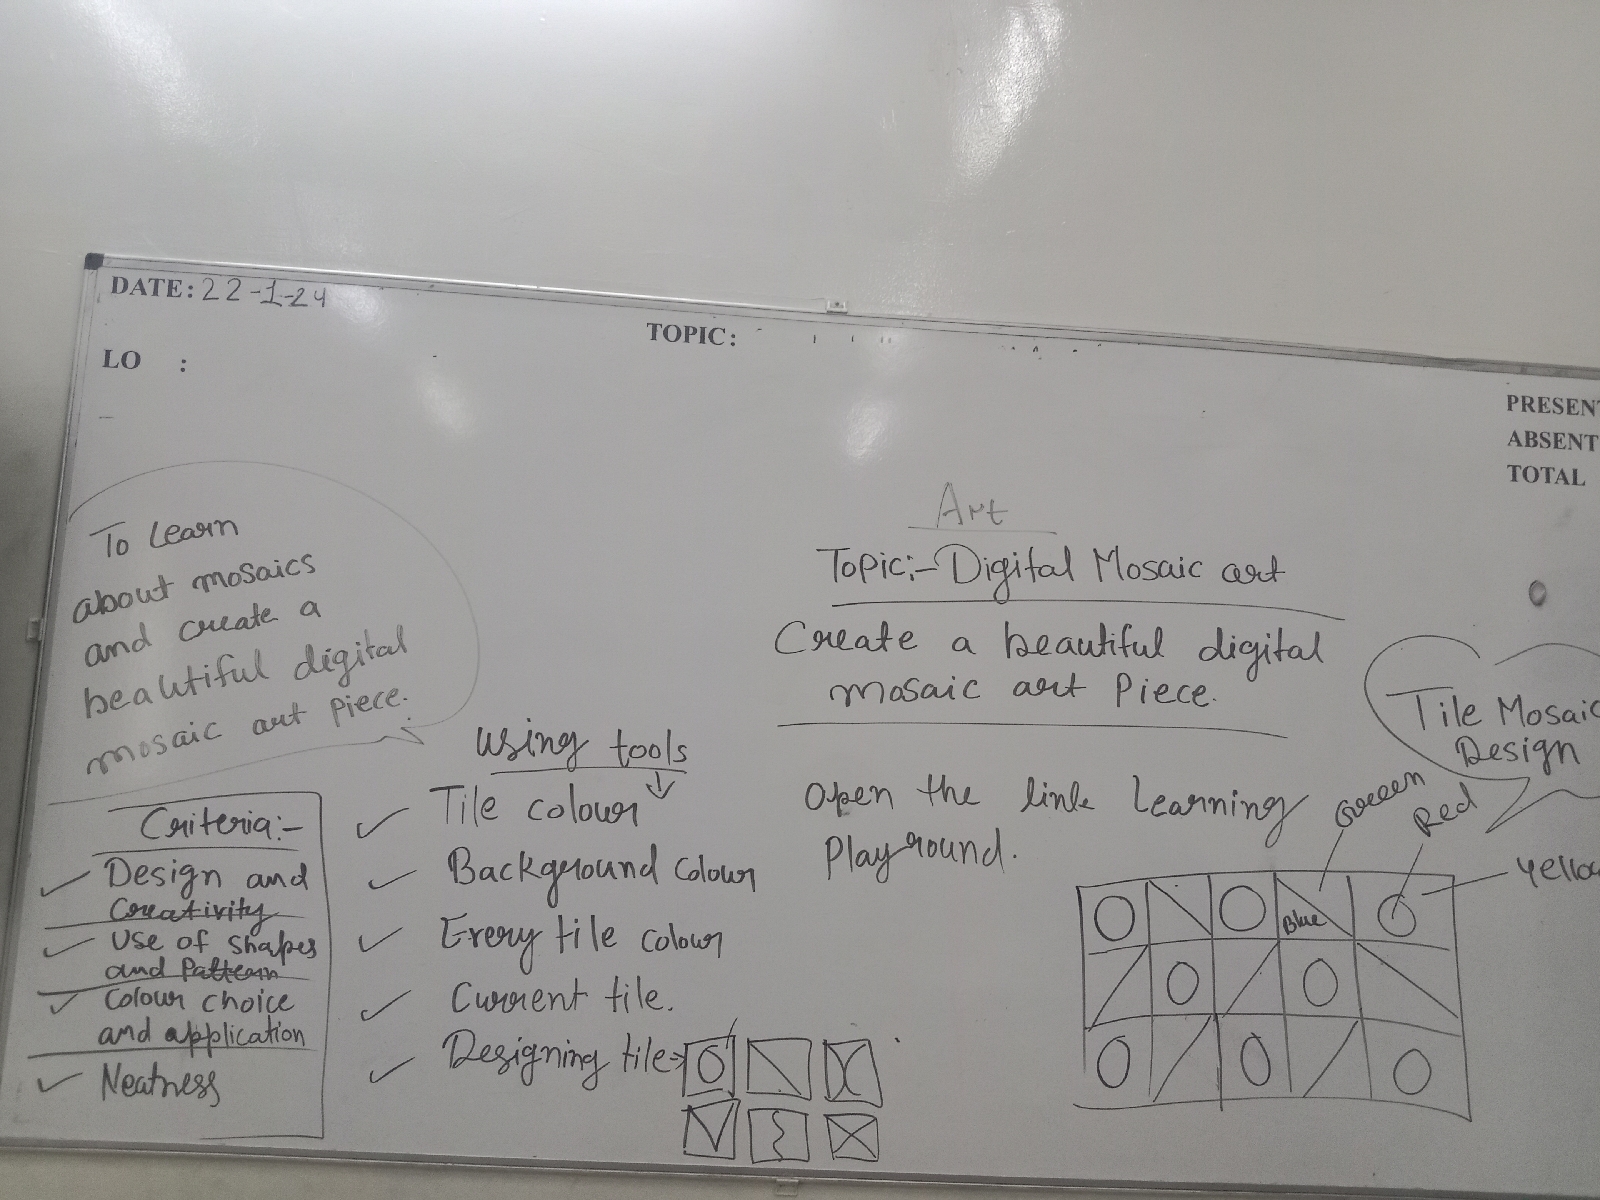 DATE: 22-1-24
TOPIC:
LO :
PRESENT
ABSENT
TOTAL
To Learn
about mosaics
and create a
beautiful digital
mosaic art Piece.
Criteria:-
Design and
Creativity
Use of shapes
and Pattern
Colour choice
and application
Neatness
Using tools
Tile colour
Background Colour
Every tile colour
Current tile.
Designing tile
Art
Topic:- Digital Mosaic art
Create a beautiful digital
mosaic art Piece.
Open the link Learning
Playground.
Tile Mosaic
Design
Green
Red
Yellow
Blue